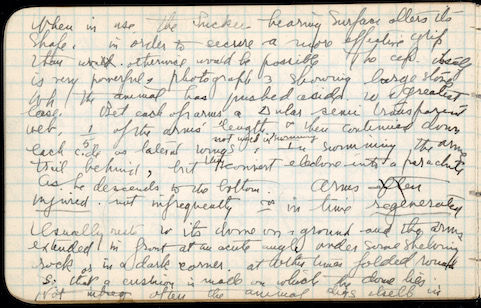 When in use the sucker bearing surface alters its
shape, in order to secure a more effective grip
than would otherwise would be possible. The ceph. itself
is very powerful & photograph 3 showing large stone
wh the animal has pushed aside w greatest
ease. Bet each of arms a similar semi transparent
web, of the arms' length, is then continued down
each side as lateral wings,
not used in swimming
In swimming the arms
trail behind, but they convert electone into a parachute
as he descends to the bottom. Arms often
injured not infrequently & in time regenerated
Usually rests w its dome on ground and the arms
extended in front at an acute angle under some shelving
rock or in a dark corner. at other times folded round
so that a cushion is made on which the dome lies
Not often the animal digs itself in